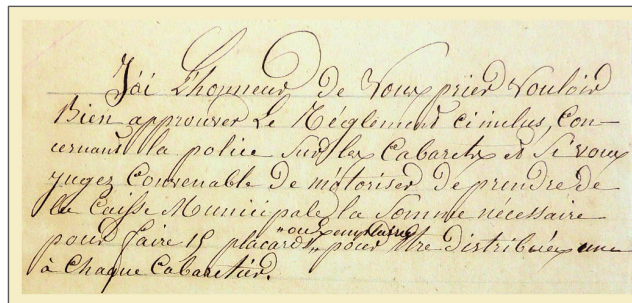 J'ai l'honneur de Vous prier Vouloir
Bien approuver Le Réglement ci inclus, Con-
cernant la police Sur les Cabarets et Si vous
jugez Convenable de m'atoriser de prendre de
la Caisse Municipale la Somme nécessaire
pour faire 15 placards pour être distribués une
à Chaque Cabaretier.